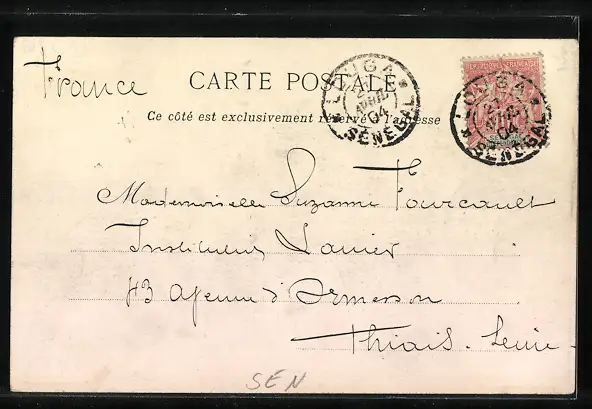 France
CARTE POSTALE
Ce côté est exclusivement réservé à l'adresse
LOUGA
AVRIL
04
SÉNÉGAL
LOUGA
04
SÉNÉGAL
Mademoiselle Suzanne Fourcault
Institution Lanier
43 Avenue d'Ormesson
Thiais. Seine
SEN